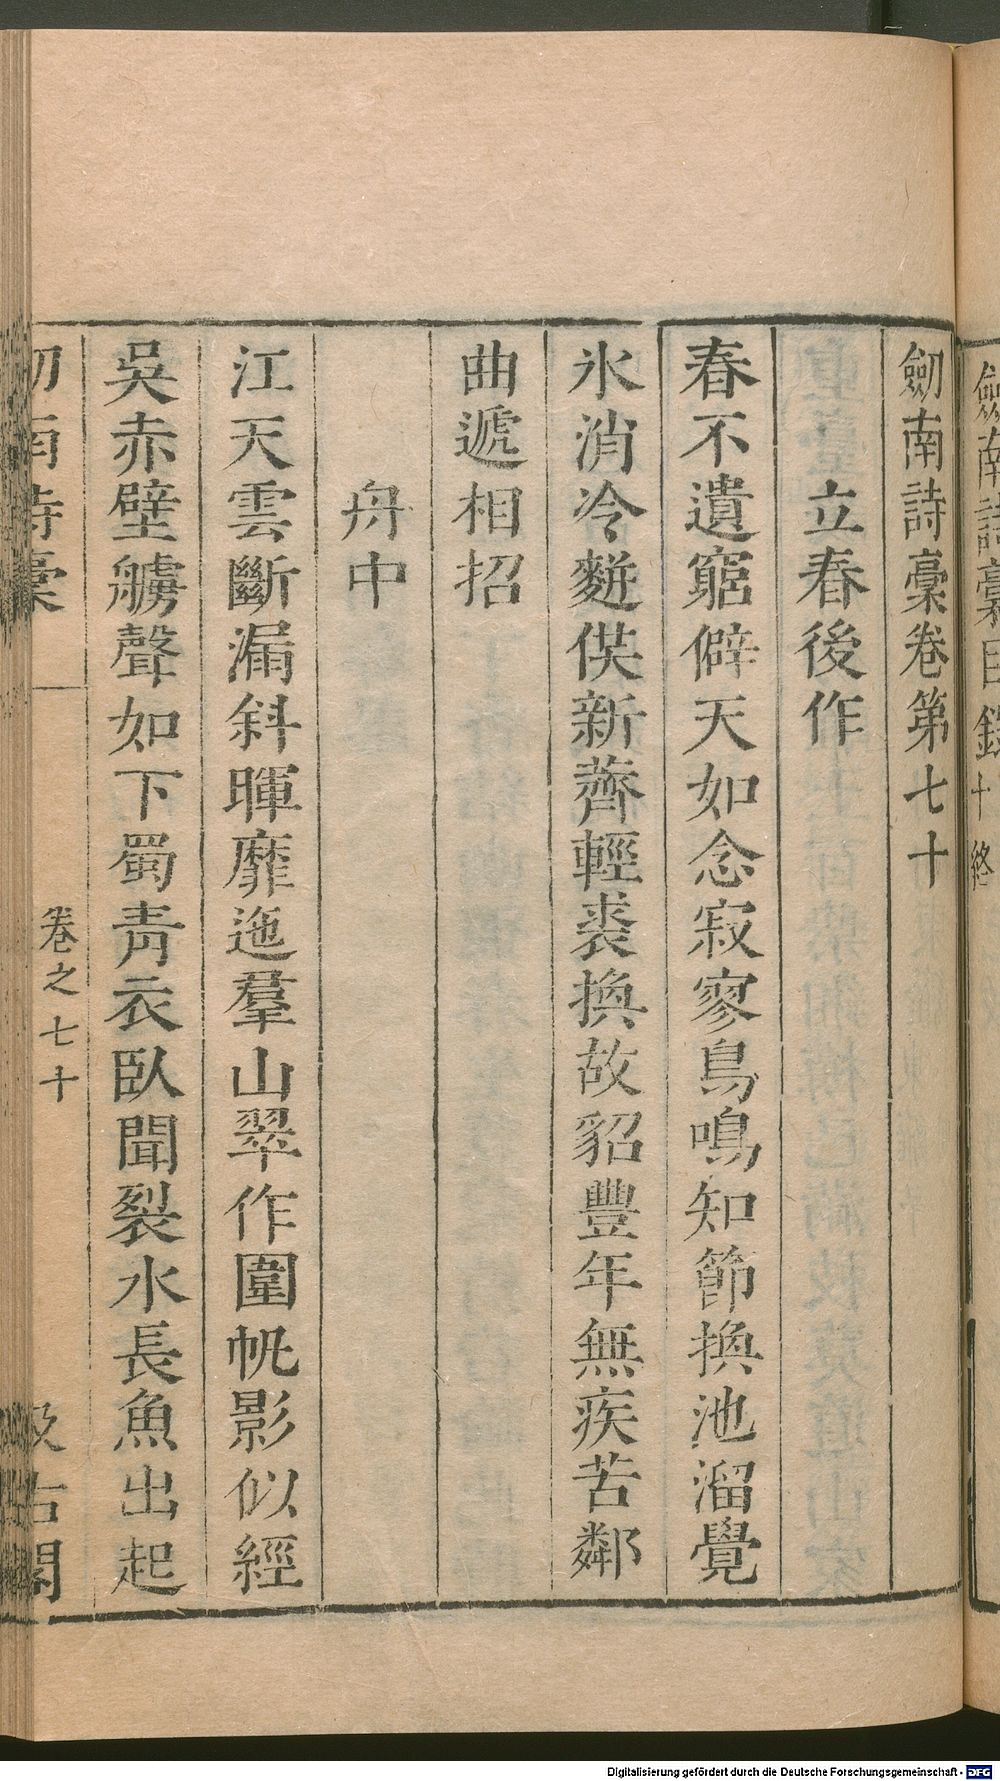 劒南詩稾目錄十終
劒南詩稾卷第七十
立春後作
春不遺窮僻天如念寂寥鳥鳴知節換池溜覺
氷消冷麰供新薺輕裘換故貂豐年無疾苦鄰
曲遞相招
舟中
江天雲斷漏斜暉靡迤羣山翠作圍帆影似經
吳赤壁艣聲如下蜀青衣臥聞裂水長魚出起
劒南詩稾
卷之七十
汲古閣
Digitalisierung gefördert durch die Deutsche Forschungsgemeinschaft - DFG